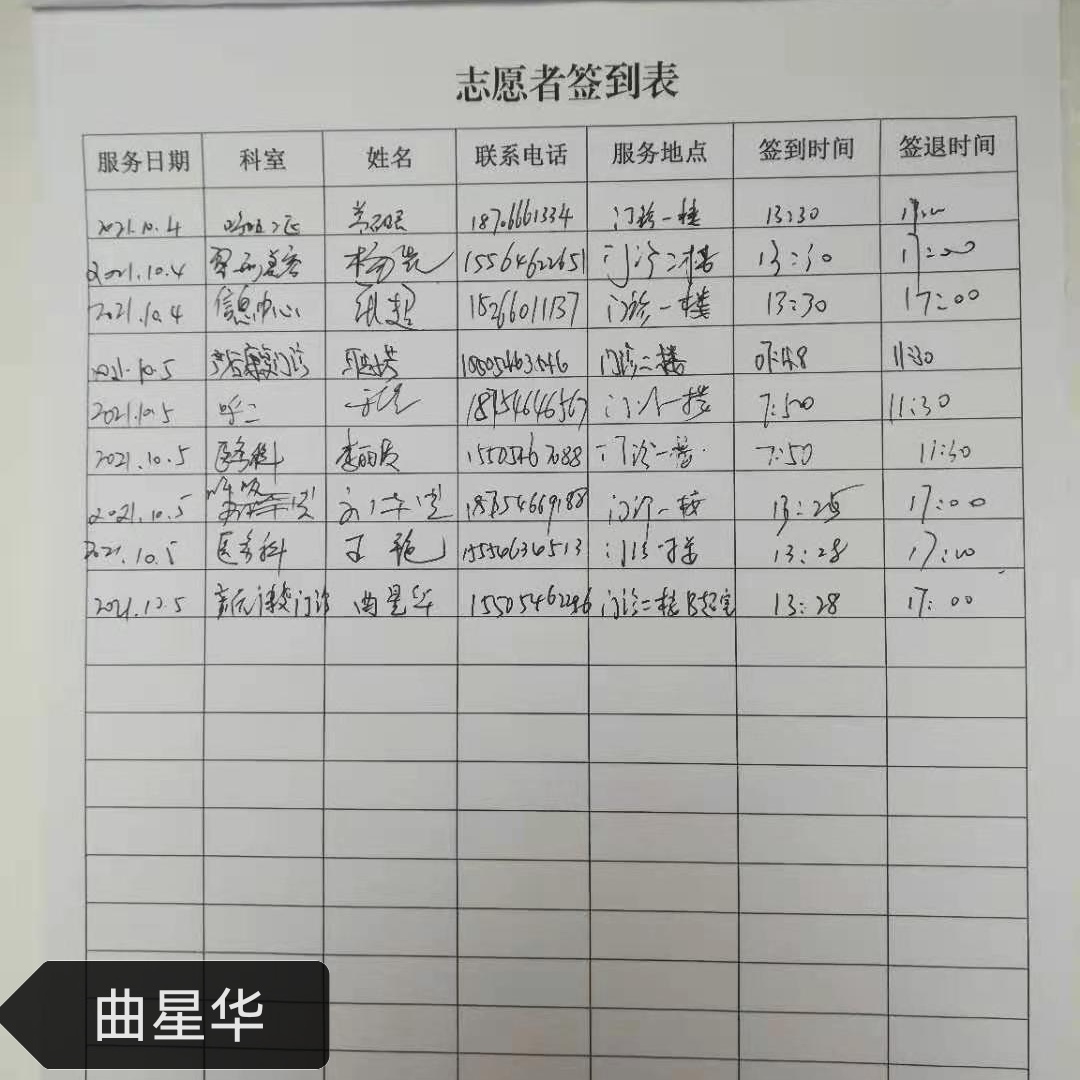 志愿者签到表
服务日期 科室 姓名 联系电话 服务地点 签到时间 签退时间
2021.10.4 18706661334 门诊一楼 13:30
2021.10.4 杨 15564622651 门诊二楼 13:30 17:00
2021.10.4 信息中心 15266011137 门诊一楼 13:30 17:00
2021.10.5 产后康复门诊 门诊二楼 07:48 11:30
2021.10.5 呼二 18754646567 门诊一楼 7:50 11:30
2021.10.5 医务科 门诊一楼 7:50 11:30
2021.10.5 呼吸 18754669188 门诊一楼 13:25 17:00
2021.10.5 医务科 王艳 15550636513 门诊一楼 13:28 17:00
2021.12.5 门诊 曲星华 15505462296 门诊二楼B超室 13:28 17:00
曲星华